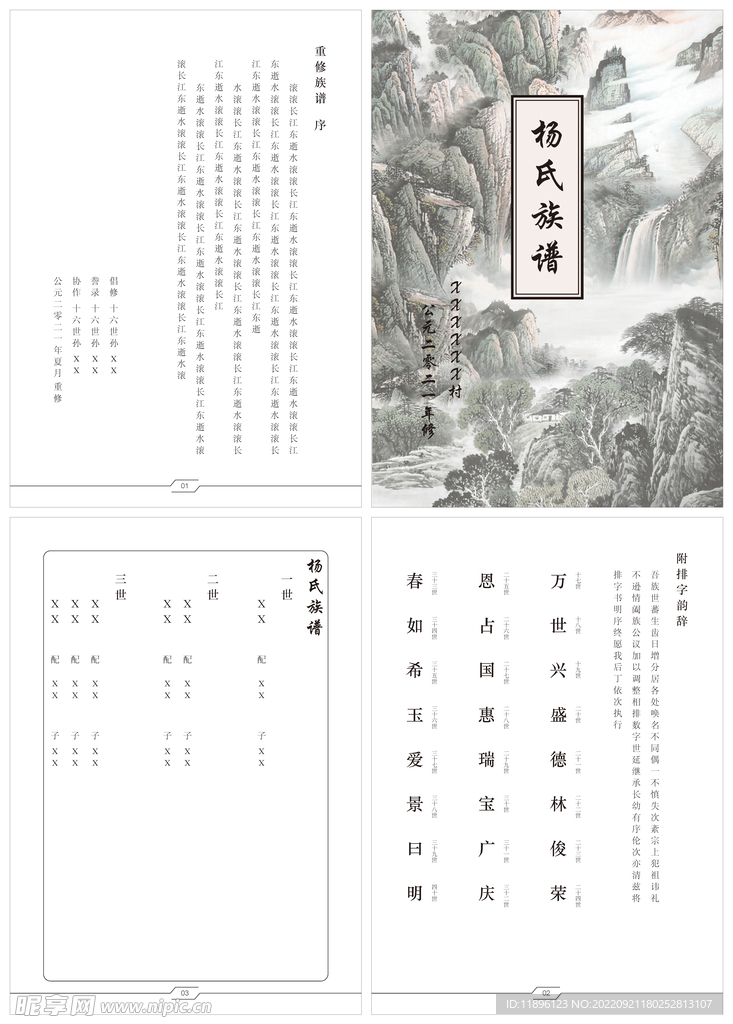 重修族谱 序
滚滚长江东逝水滚滚长江东逝水滚滚长江东逝水滚滚长江东逝水滚滚长江
东逝水滚滚长江东逝水滚滚长江东逝水滚滚长江东逝水滚滚长江东逝水滚滚长
江东逝水滚滚长江东逝水滚滚长江东逝水滚滚长江东逝
水滚滚长江东逝水滚滚长江东逝水滚滚长江东逝水滚滚长江东逝水滚滚长
江东逝水滚滚长江东逝水滚滚长江东逝水滚滚长江
东逝水滚滚长江东逝水滚滚长江东逝水滚滚长江东逝水滚滚长江东逝水滚
滚长江东逝水滚滚长江东逝水滚滚长江东逝水滚滚长江东逝水滚
倡修 十六世孙 XX
誊录 十六世孙 XX
协作 十六世孙 XX
公元二零二一年夏月重修
01
杨氏族谱
XXXXXX村
公元二零二一年修
杨氏族谱
一世
XX 配 XX 子 XX
二世
XX 配 XX 子 XX
XX 配 XX 子 XX
三世
XX 配 XX 子 XX
XX 配 XX 子 XX
XX 配 XX 子 XX
03
附排字韵辞
吾族世蕃生齿日增分居各处唤名不同偶一不慎失次紊宗上犯祖讳礼
不逊情阖族公议加以调整相排数字世延继承长幼有序伦次亦清兹将
排字书明序终愿我后丁依次执行
十七世 十八世 十九世 二十世 二十一世 二十二世 二十三世 二十四世
万世兴盛德林俊荣
二十五世 二十六世 二十七世 二十八世 二十九世 三十世 三十一世 三十二世
恩占国惠瑞宝广庆
三十三世 三十四世 三十五世 三十六世 三十七世 三十八世 三十九世 四十世
春如希玉爱景曰明
02
昵享网 www.nipic.cn
ID:11896123 NO:20220921180252813107